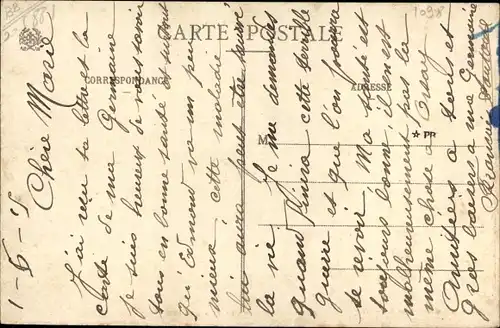 CARTE POSTALE
CORRESPONDANCE
ADRESSE
M
★ PP
1098
1-5-15
Chère Marie
J'ai reçu ta lettre et la
carte de ma Germaine
je suis heureux de vous savoir
tous en bonne santé et surtout
qu'Edmond va un peu
mieux, cette maladie
lui aura peut être sauvé
la vie. Je me demande
quand finira cette terrible
guerre et que l'on pourra
se revoir. Ma santé est
toujours bonne, il n'en est
malheureusement pas la
même chose à
Amitiés à tous et
gros baisers à ma Germaine